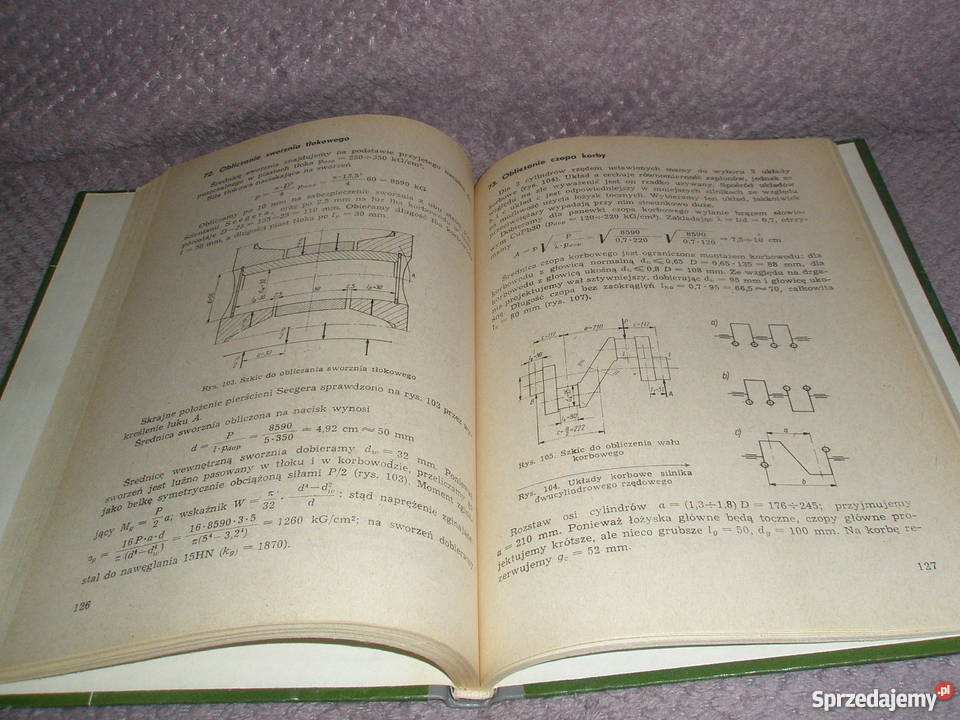 72. Obliczanie sworznia tłokowego
Średnicę sworznia znajdujemy na podstawie przyjętego nacisku
w piastach tłoka pdop = 250÷350 kG/cm².
Siła tłokowa naciskająca na sworzeń
P = π·D²/4 · = π·13,5²/4 · 60 = 8590 kG
Obieramy po 10 mm na zabezpieczenie sworznia z obu stron pier-
ścieniami Seegera, oraz po 2,5 mm na luz
pozostaje D−25 = 135−25 = 110 mm. Obieramy długość łba korbowodu
l = 50 mm, a długości piast tłoka po lp = 30 mm.
Rys. 103. Szkic do obliczania sworznia tłokowego
Skrajne położenie pierścieni Seegera sprawdzono na rys. 103 przez wy-
kreślenie łuku A.
Średnica sworznia obliczona na nacisk wynosi
d = P/l·pdop = 8590/5·350 = 4,92 cm ≈ 50 mm
Średnicę wewnętrzną sworznia dobieramy dw = 32 mm. Ponieważ
sworzeń jest luźno pasowany w tłoku i w korbowodzie, przeliczamy go
jako belkę symetrycznie obciążoną siłami P/2 (rys. 103). Moment zgina-
jący Mg = P/2 a; wskaźnik W = π/32 · d⁴−dw⁴/d ; stąd naprężenie zginające
τg = 16P·a·d/π(d⁴−dw⁴) = 16·8590·3·5/π(5⁴−3,2⁴) = 1260 kG/cm²; na sworzeń dobieramy
stal do nawęglania 15HN (kgj = 1870).
126
73. Obliczanie czopa korby
Dla 2 cylindrów rzędem ustawionych mamy do wyboru 3 układy
korbowe (rys. 104). Układ a cechuje równomierność zapłonów, jednak ze
względu na złe wyważenie jest on rzadko używany. Spośród układów
b i c układ c jest odpowiedniejszy w mniejszych silnikach ze względu
na możliwość użycia łożysk tocznych. Wybieramy ten układ, jakkolwiek
przeciwciężary wypadają przy nim stosunkowo duże.
Dobieramy dla panewki czopa korbowego wylanie brązem ołowio-
wym CuPb30 (pdop = 120÷220 kG/cm²). Zakładając λ = l/d = 0,7, otrzy-
mamy
A = P√P/λ·pdop = √8590/0,7·220 √8590/0,7·120 = 7,5÷10 cm
Średnica czopa korbowego jest ograniczona montażem korbowodu: dla
korbowodu z głowicą normalną dk ≤ 0,65 D = 0,65·135 = 88 mm, dla
korbowodu z głowicą ukośną dk ≤ 0,8 D = 108 mm. Ze względu na drga-
nia projektujemy wał sztywniejszy, dobierając dk = 95 mm i głowicę uko-
śną. Długość czopa bez zaokrągleń lko = 0,7·95 = 66,5 ≈ 70, całkowita
lk = 80 mm (rys. 107).
a=210
c=117
c=117
A
a)
b)
c)
a
b
Rys. 105. Szkic do obliczenia wału
korbowego
Rys. 104. Układy korbowe silnika
dwucylindrowego rzędowego
Rozstaw osi cylindrów a = (1,3÷1,8) D = 176÷245; przyjmujemy
a = 210 mm. Ponieważ łożyska główne będą toczne, czopy główne pro-
jektujemy krótsze, ale nieco grubsze lg = 50, dg = 100 mm. Na korbę re-
zerwujemy gc = 52 mm.
127
Sprzedajemy.pl